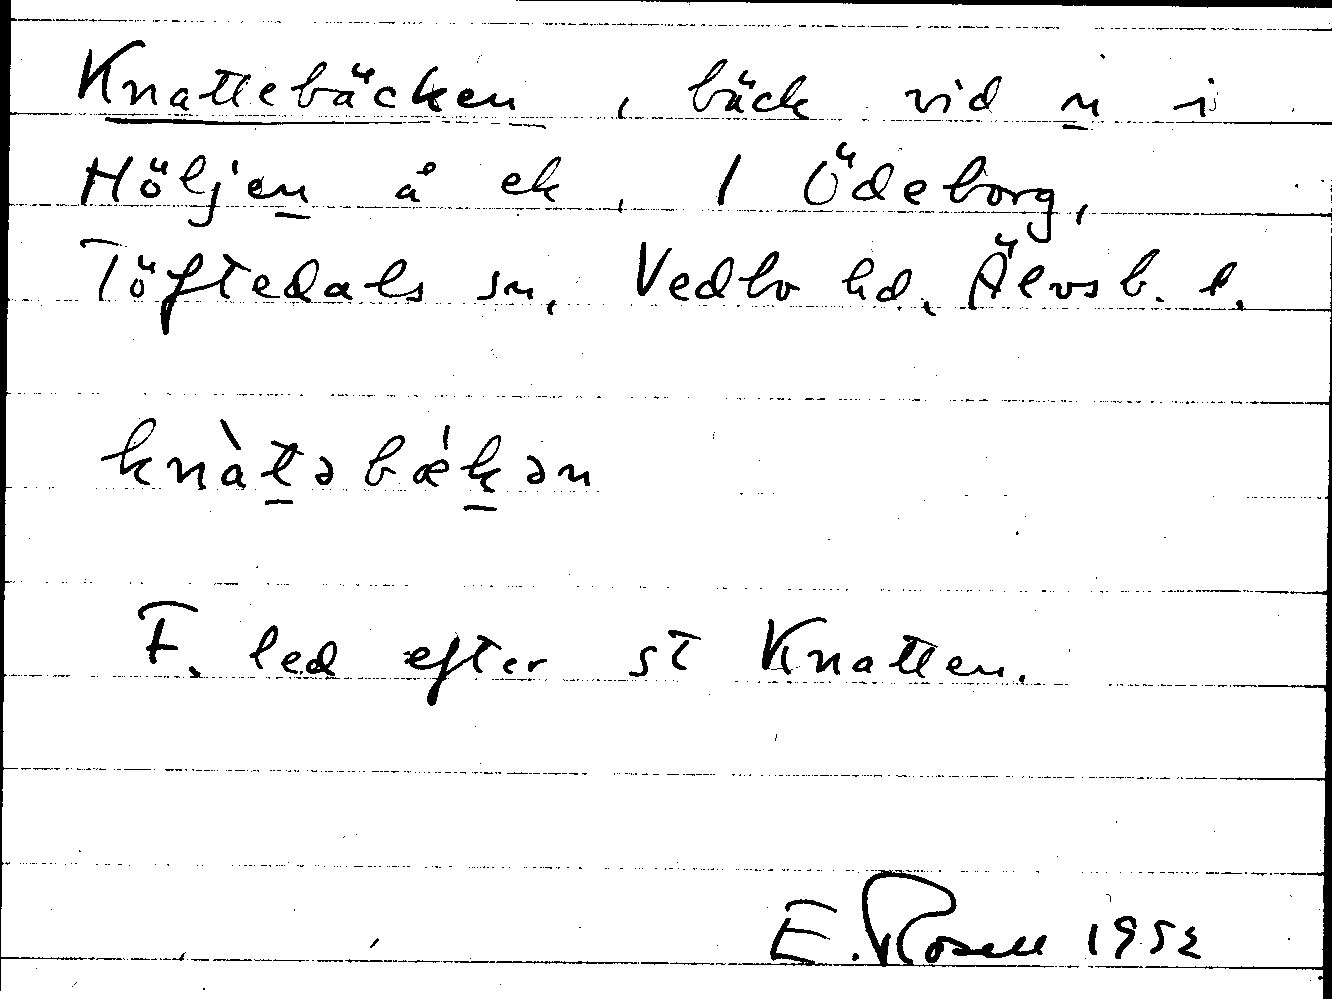 Knattebäcken, bäck vid n i
Höljen å ek, 1 Ödeborg,
Töftedals sn, Vedbo hd, Älvsb. l.
knàt̲əbǽk̲ən
F. led efter st Knatten.
E. Rosell 1952